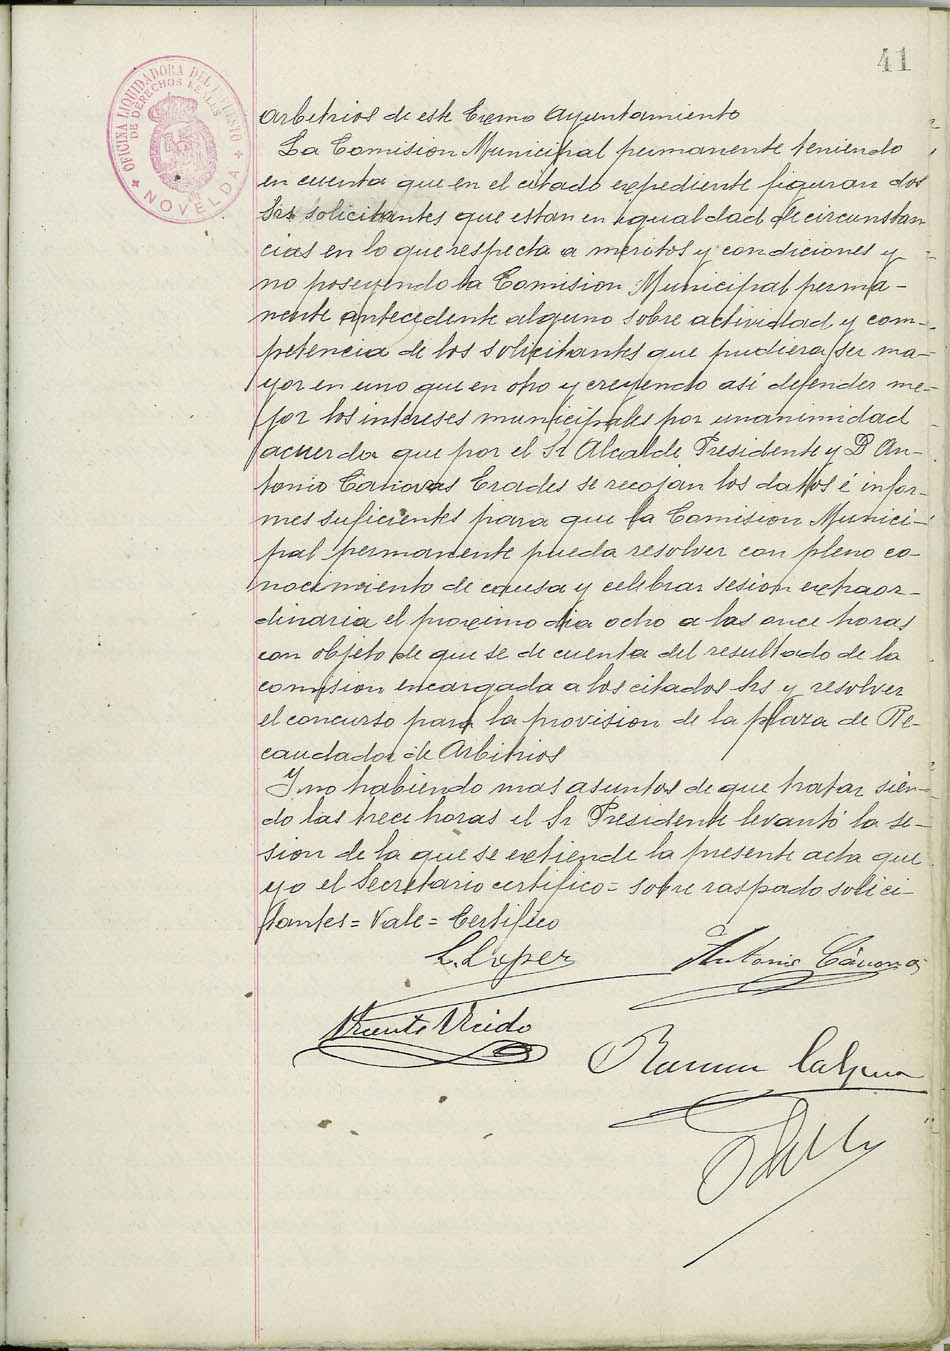 41
OFICINA LIQUIDADORA DEL IMPUESTO
DE DERECHOS REALES
NOVELDA
Arbitrios de este Excmo Ayuntamiento
La Comision Municipal permanente teniendo
en cuenta que en el citado expediente figuran dos
Srs solicitantes que estan en igualdad de circunstan
cias en lo que respecta a meritos y condiciones y
no poseyendo la Comision Municipal perma-
nente antecedente alguno sobre actividad y com-
petencia de los solicitantes que pudiera ser ma-
yor en uno que en otro y creyendo así defender me-
jor los intereses municipales por unanimidad
acuerda que por el Sr Alcalde Presidente y D An-
tonio Canovas Erades se recojan los datos é infor-
mes suficientes para que la Comision Munici-
pal permanente pueda resolver con pleno co-
nocimiento de causa y celebrar sesion extraor-
dinaria el proximo dia ocho a las once horas
con objeto de que se de cuenta del resultado de la
comision encargada a los citados Srs y resolver
el concurso para la provision de la plaza de Re-
caudador de Arbitrios
Y no habiendo mas asuntos de que tratar sien-
do las trece horas el Sr Presidente levantó la se-
sion de la que se extiende la presente acta que
yo el Secretario certifico = sobre raspado solici-
tantes = Vale = Certifico
L. Lopez
Antonio Cánovas
Vicente
Ramon